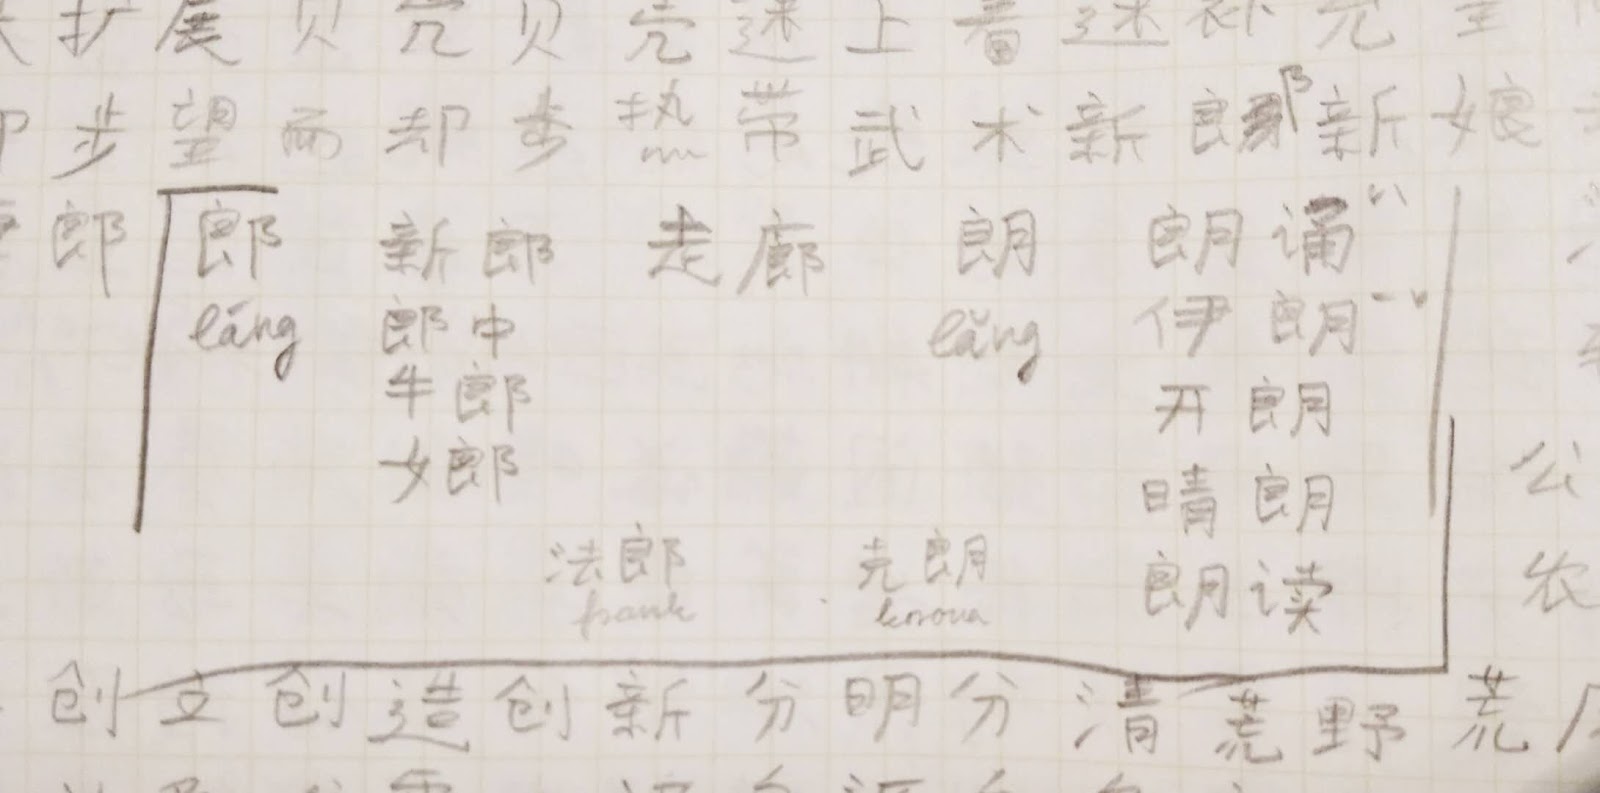 扩展贝壳贝壳迷上着迷补充
步望而却步热带武术新郎新娘
郎 郎 新郎 走廊 朗 朗诵
láng 郎中 lǎng 伊朗
牛郎 开朗
女郎 晴朗 公
法郎 克朗 朗读 农
frank korona
创立创造创新分明分清荒野荒